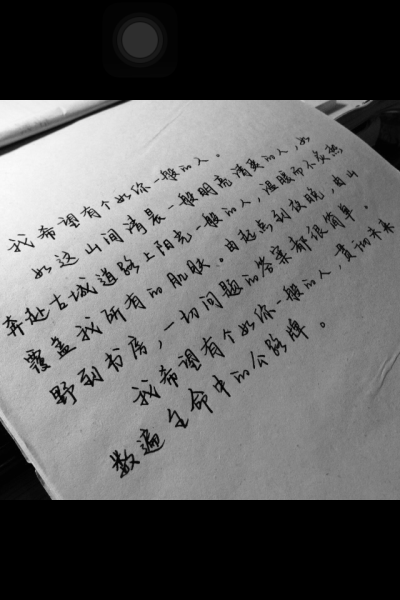 我希望有个如你一般的人。
如这山间清晨一般明亮清爽的人,如
奔赴古城道路上阳光一般的人,温暖而不炙热
覆盖我所有的肌肤。由起点到夜晚,由山
野到书房,一切问题的答案都很简单。
我希望有个如你一般的人,贯彻未来
数遍生命中的公路牌。